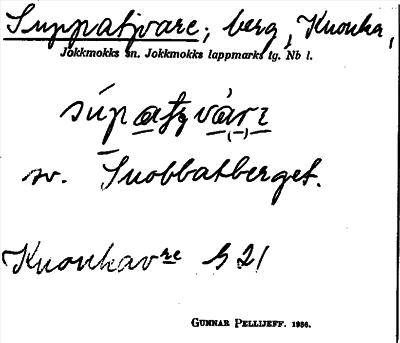 Suppatjvare; berg, Knouka,
Jokkmokks sn. Jokkmokks lappmarks tg. Nb l.
súpatʒvárɛ
sv. Snobbatberget.
Knoukavre S 21
GUNNAR PELLIJEFF. 1956.